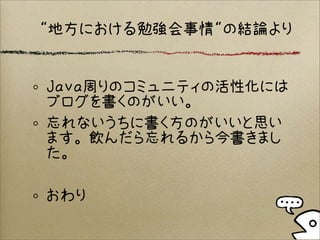 “地方における勉強会事情“の結論より
Java周りのコミュニティの活性化には
ブログを書くのがいい。
忘れないうちに書く方のがいいと思い
ます。飲んだら忘れるから今書きまし
た。
おわり